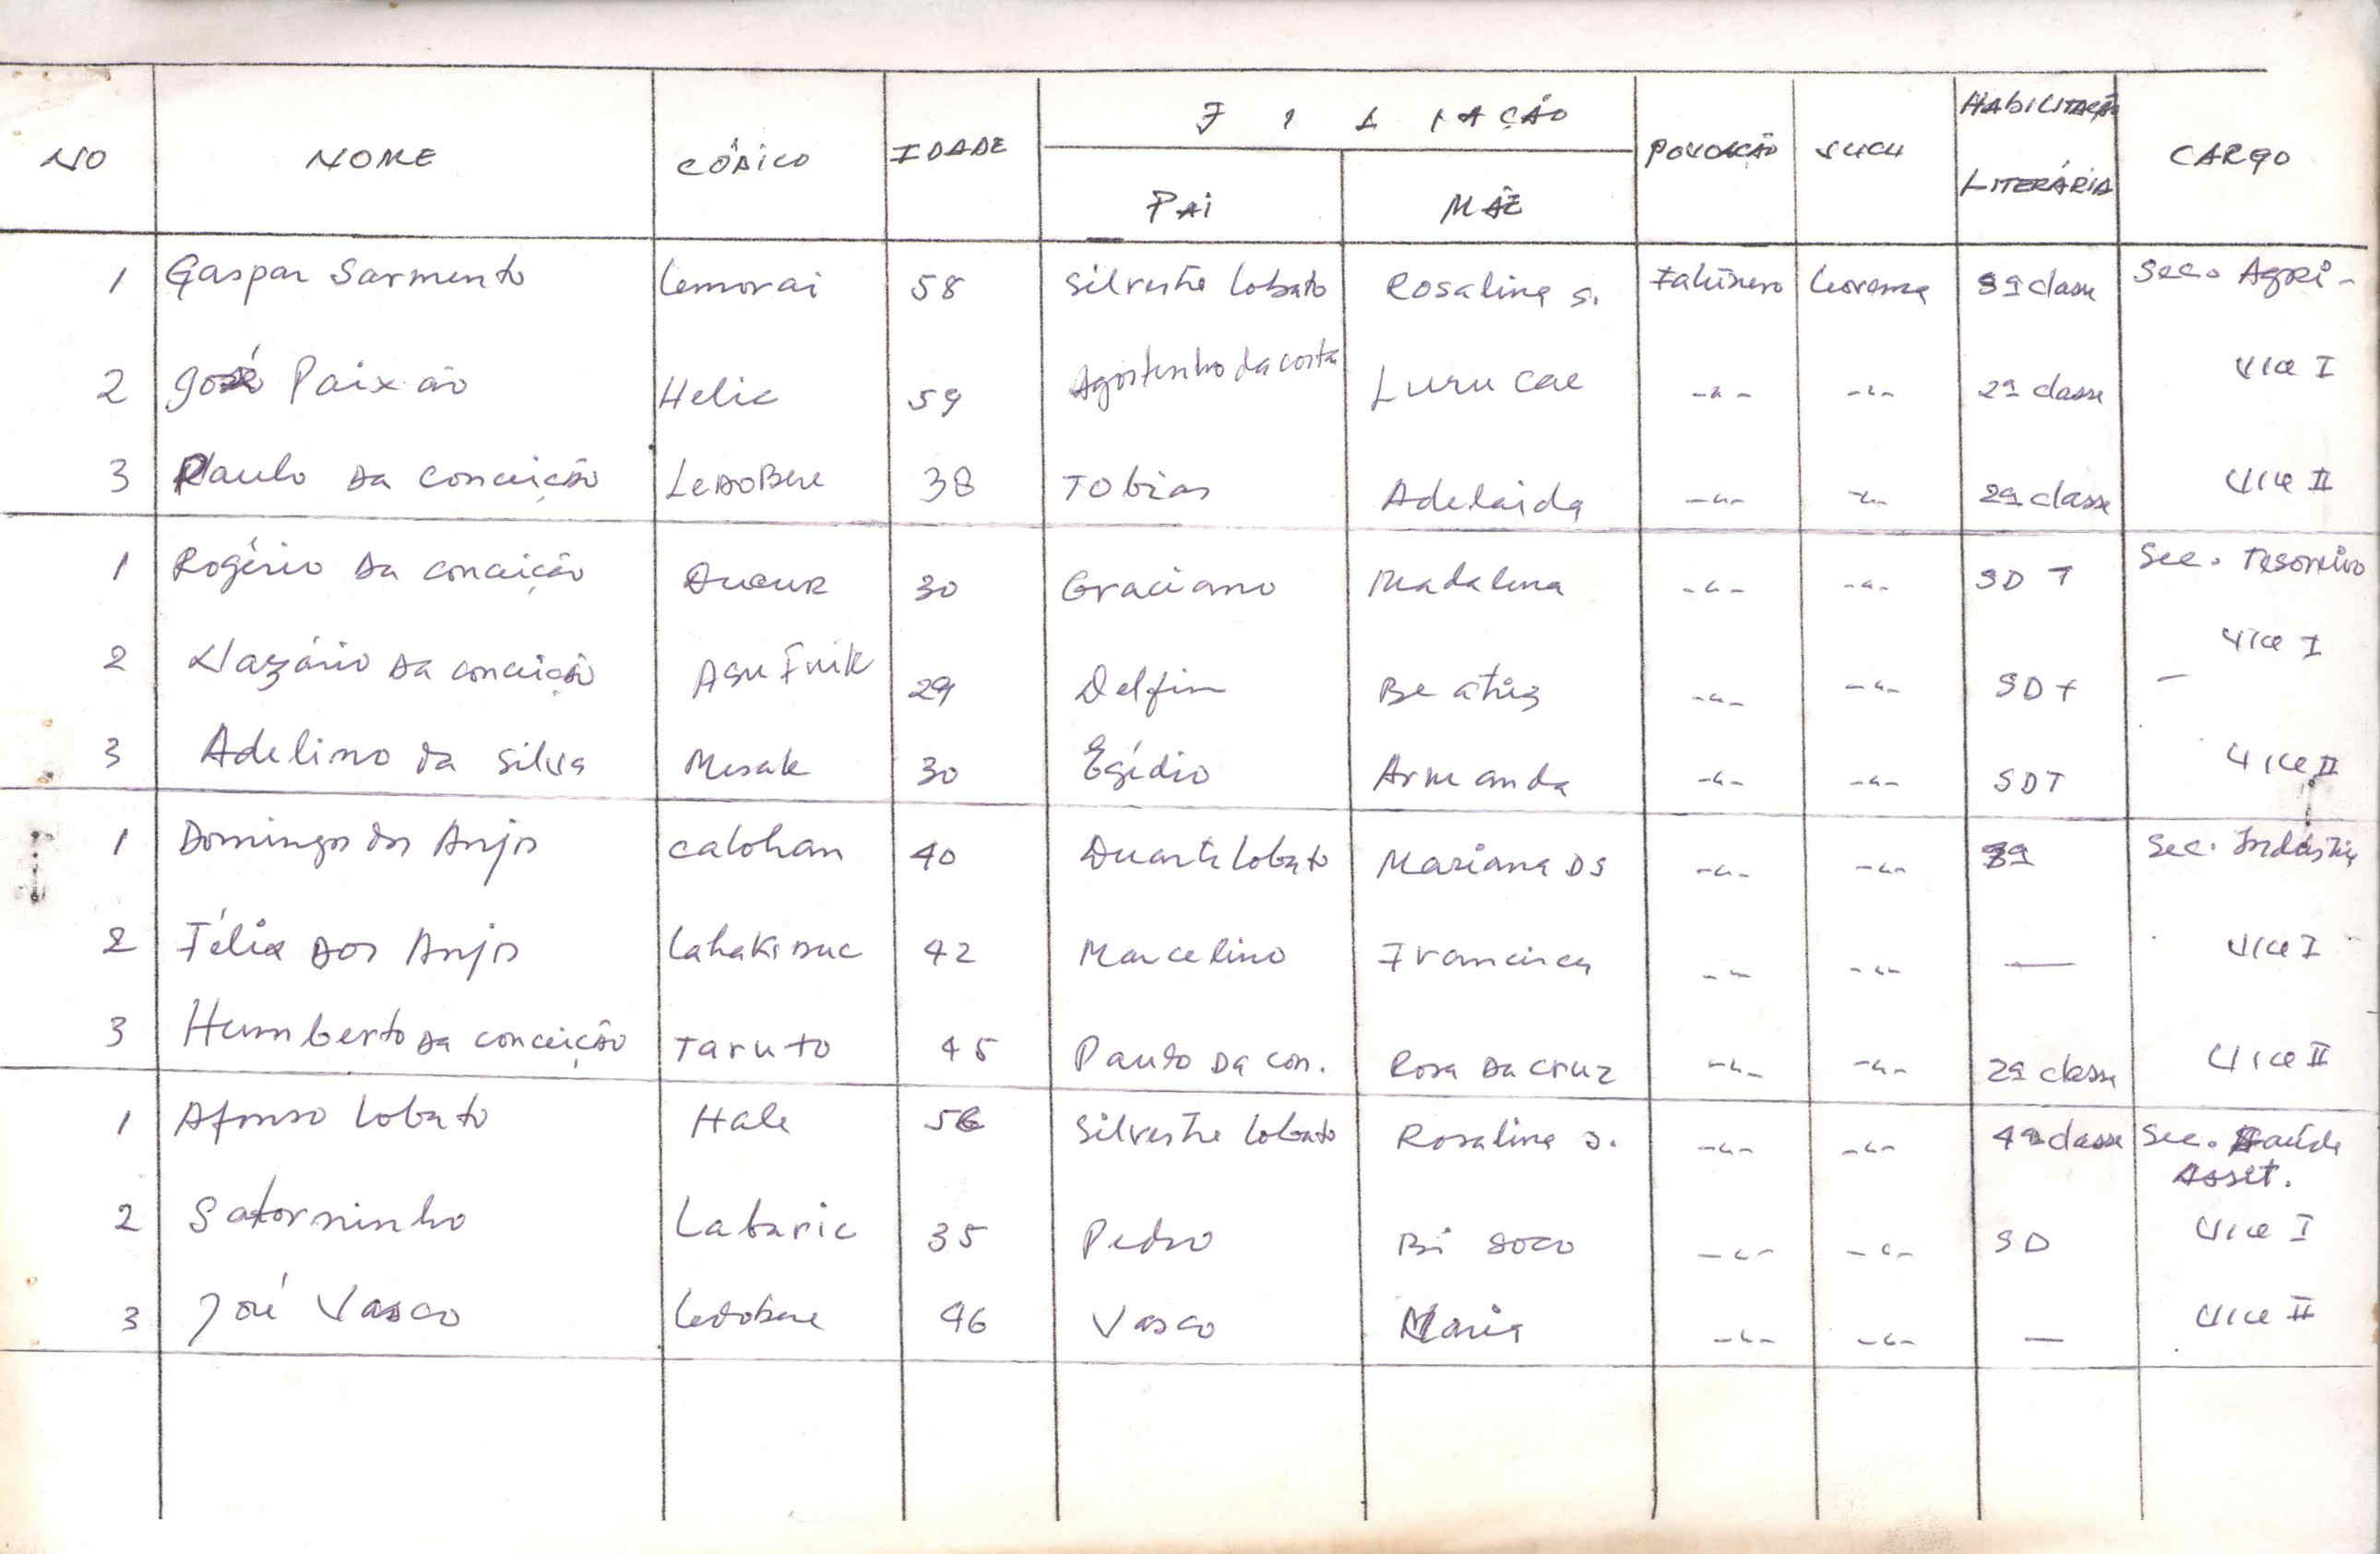 NO NOME CÓDICO IDADE FILIAÇÃO POVOAÇÃO SUCU HABILITAÇÃO LITERÁRIA CARGO
PAI MÃE
1 Gaspar Sarmento Lemorai 58 Silvestre Lobato Rosalina S. 3ª classe Sec. Agri-
2 José Paixão Helic 59 Agostinho da costa Luru Cae -"- -"- 2ª classe Vice I
3 Paulo Da Conceição LEDOBere 38 Tobias Adelaida -"- -"- 2ª classe Vice II
1 Rogério Da conceição 30 Graciano Madalena -"- -"- SDT Sec. Tesoreiro
2 Nazário Da conceição Asu Fuik 29 Delfin Beatriz -"- -"- SDT - Vice I
3 Adelino da Silva Mesak 30 Egídio Armanda -"- -"- SDT Vice II
1 Domingos dos Anjos calohan 40 Duarte Lobato Mariana DS -"- -"- 3ª Sec. Indústria
2 Félix Dos Anjos Lahakiduc 42 Marcelino Francisca -"- -"- — Vice I
3 Humberto Da conceição Taruto 45 Paulo Da con. Rosa Da cruz -"- -"- 2ª classe Vice II
1 Afonso Lobato Hale 56 Silvestre Lobato Rosalina S. -"- -"- 4ª classe Sec. Saúde
Asset.
2 Satorninho Labaric 35 Pedro Bi soco -"- -"- SD Vice I
3 José Vasco Ledobere 46 Vasco Maria -"- -"- — Vice II